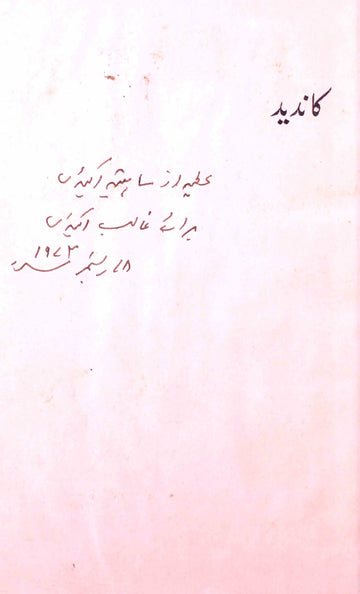 کاندید
عطیہ از ساہتیہ اکیڈمی
برائے غالب اکیڈمی
۱۸ دسمبر ۱۹۷۳